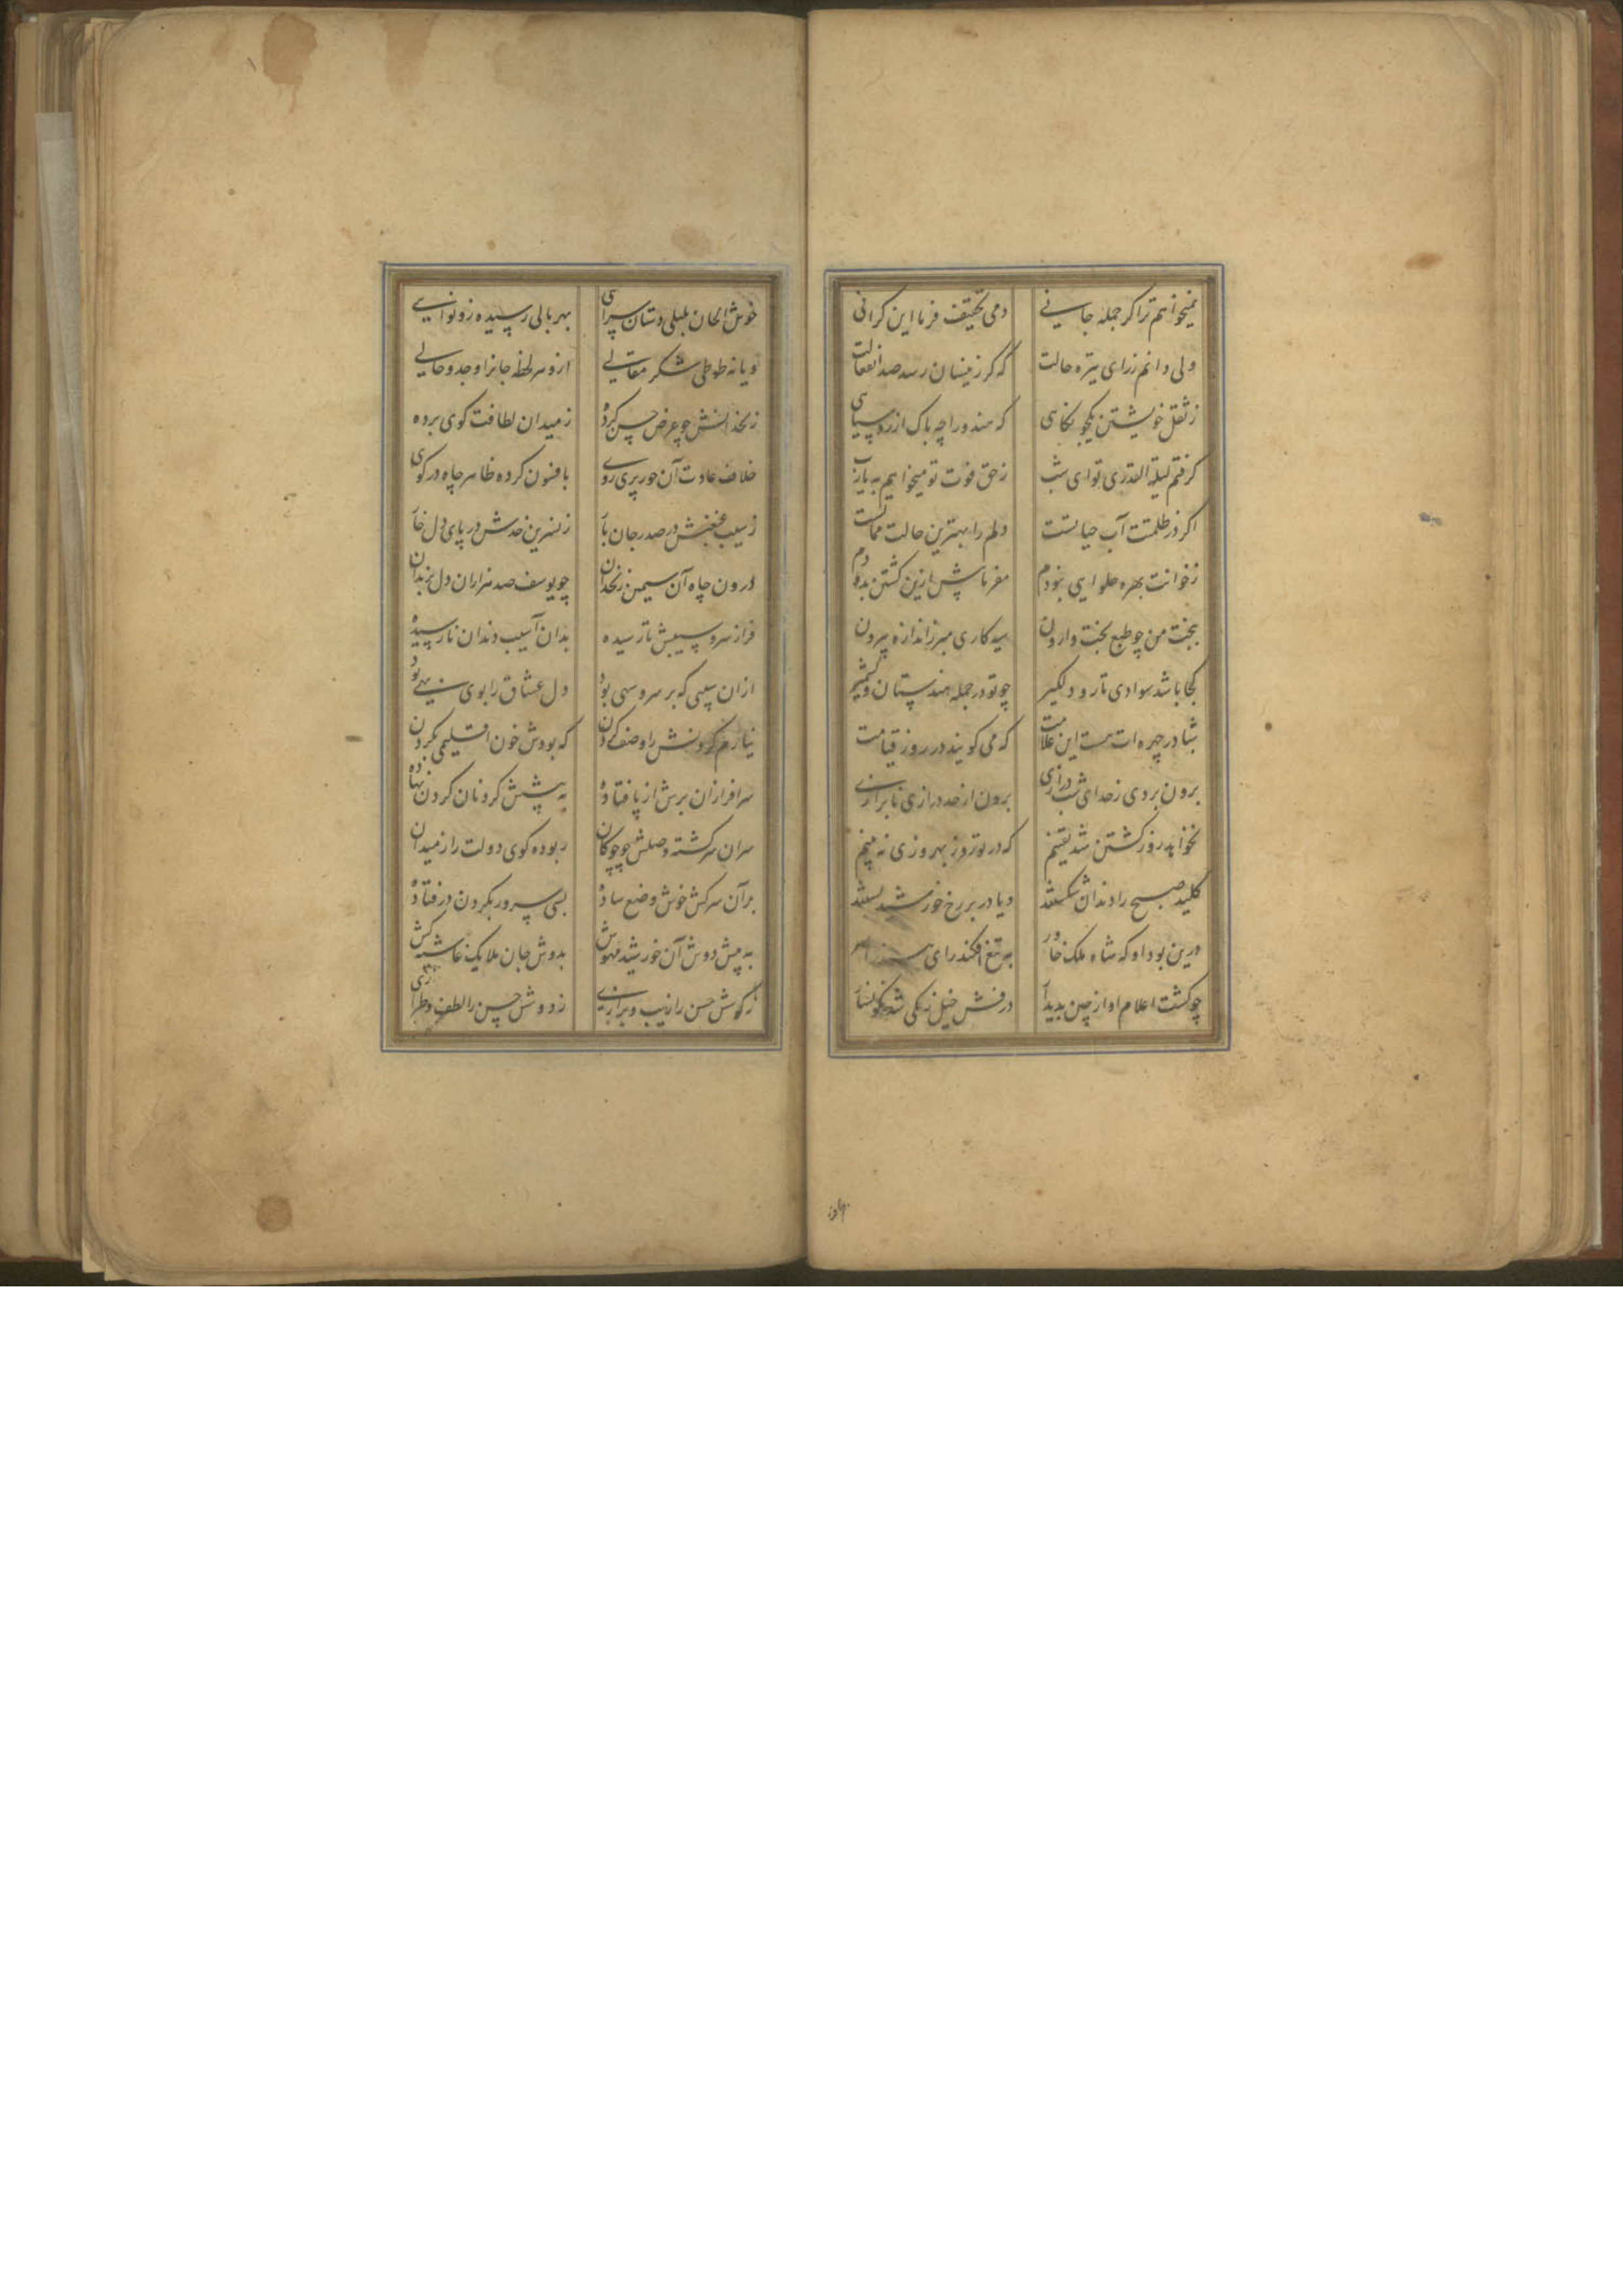 نمیخواهم ترا کر جمله جانی دمی تخفیف فرما این کرانی
ولی دانم زرای تیره حالت که کر زینسان رسد صد انفعالت
ز ثقل خویشتن یکجو نکاهی که هندو را چه باک از روسیاهی
کرفتم لیلة القدری تو ای شب ز حق فوت تو میخواهم به یارب
اکر در ظلمتت آب حیاتست دلم را بهترین حالت مماتست
ز خوانت بهره حلوایی نبودم مفرما پیش ازین کشتن بدودم
ببخت من چو طبع بخت وارون سیه کاری مبر ز اندازه بیرون
کجا باشد سوادی تار و دلکیر چو تو در جمله هندستان و کشمیر
شبا در چهره ات هست این علامت که می کویند در روز قیامت
برون بردی ز حد ای شب درازی برون از حد درازی نابرازی
نخواهد روز کشتن شد یقینم که در تو روز بهروزی نه بینم
کلید صبح را دندان شکستند و یا در بر رخ خورشید بستند
درین بود او که شاه ملک خاور به تیغ افکند رای هند را سر
چو کشت اعلام او از چین بدیدار درفش خیل زنکی شد نکونسار
خوش الحان بلبلی دستان سرای بهر بالی رسیده زو نوایی
و یا نه طوطی شکر مقالی ازو هر لحظه جانرا وجد و حالی
زنخدانش چو عرض حسن کرده ز میدان لطافت کوی برده
خلاف عادت آن حور پری روی بافسون کرده ظاهر چاه در کوی
ز سیب غبغبش در صدر جان بار ز نسرین خدش در پای دل خار
درون چاه آن سیمین زنخدان چو یوسف صد هزاران دل بزندان
فراز سرو سیبش تارسیده بدان آسیب دندان نارسیده
ازان سیبی که بر سرو سهی بود دل عشاق را بوی بهی بود
نیارم کردنش را وصف کردن که بودش خون اقلیمی بکردن
سرافرازان برش از پا فتاده به پیشش کردنان کردن نهاده
سران سرکشته وصلش چو چوکان ربوده کوی دولت را ز میدان
بر آن سرکش خوش وضع ساده بسی سرور بکردن در فتاده
به پیش دوش آن خورشید مهوش بدوش جان ملایک غاشیه کش
ز کوش حسن را زیب و برازی ز دوش حسن را لطف و طرازی